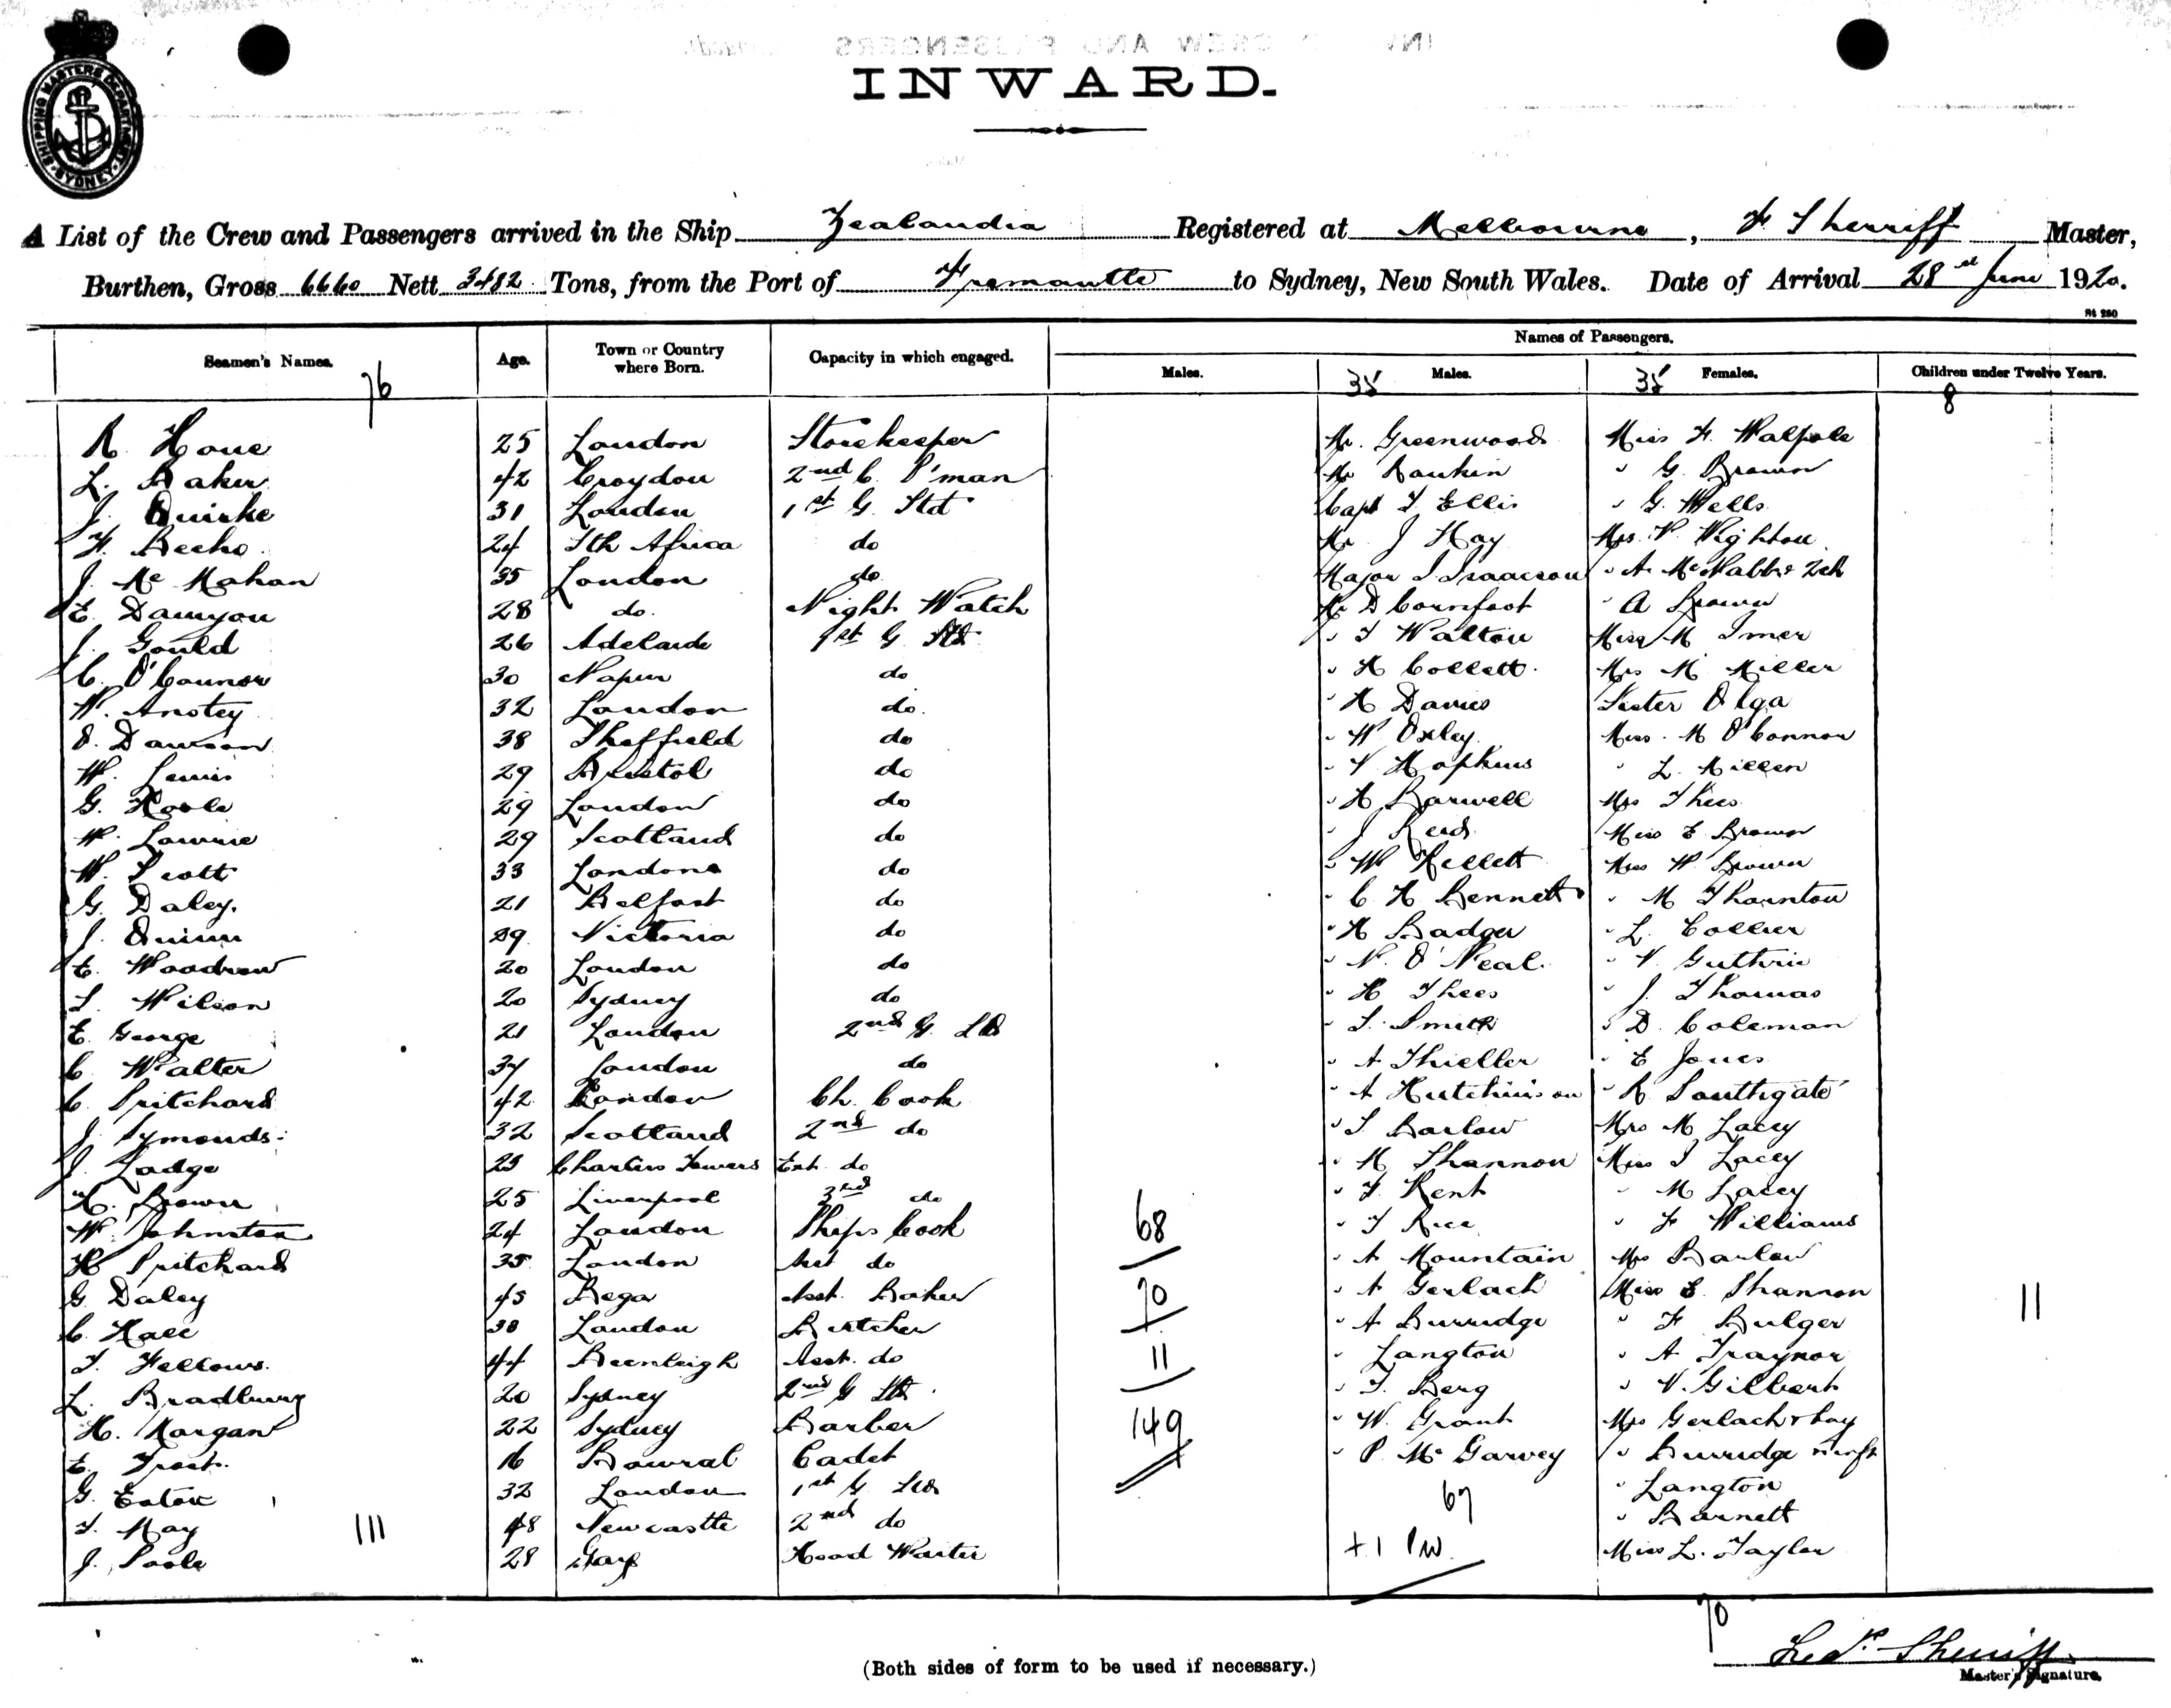 INWARD.
SHIPPING MASTERS DEPARTMENT SYDNEY
A List of the Crew and Passengers arrived in the Ship Zealandia Registered at Melbourne, F. Sherriff Master,
Burthen, Gross 6660 Nett 3482 Tons, from the Port of Fremantle to Sydney, New South Wales. Date of Arrival 28 June 1920.
Seamen's Names. Age. Town or Country where Born. Capacity in which engaged. Names of Passengers.
Males. Males. Females. Children under Twelve Years.
76 35 35 8
R. Hone 25 London Storekeeper Mr. Greenwood Miss F. Walpole
L. Baker 42 Croydon 2nd C. P'man Mr Rankin " G. Brown
J. Quirke 31 London 1st G. Std Capt T Ellis " G. Wells
F. Becho 24 Sth Africa do Mr J Hay Mrs Wighton
J. Mc Mahan 35 London do Major J. Isaacson " A. McNabb & 2ch
E. Damyon 28 do. Night Watch Mr D Cornfoot " A Brown
J. Gould 26 Adelaide 1st G. Std " T Walton Miss M Imer
C. O'Connor 30 Napier do " H Collett. Mrs M Miller
W. Anstey 32 London do. " H Davies Sister Olga
O. Dawson 38 Sheffield do " W Oxley. Miss. M O'Connor
W. Lewis 29 Bristol do " V Hopkins " L. Killen
G. Hoole 29 London do " H Barwell Mrs Thees
W. Lawrie 29 Scotland do " J Reid. Miss E Brown
W. Scott 33 London do " W Kellett Miss W. Brown
G. Daley. 21 Belfast do " C. H. Bennett " M Thornton
J. Quinn 29 Victoria do " H Badger " L. Collier
E. Woodrow 20 London do " N. O'Neal. " V. Guthrie
L. Wilson 20 Sydney do " H Thees " J. Thomas
E. George 21 London 2nd G. Std " S. Smith " D. Coleman
C. Walter 34 London do " A Thieller " E Jones
C. Pritchard 42 London Ch. Cook " A Hutchinson " R. Southgate
J. Symonds. 32 Scotland 2nd do " S Barlow Mrs M Lacey
J. Lodge 23 Charters Towers Ext. do " M Shannon Miss J Lacey
H. Brown 25 Liverpool 3rd do " F. Kent " M Lacey
W. Johnston 24 London Ships Cook 68 " T Rice " F Williams
H Pritchard 35 London Asst do " A Mountain Mrs Barlow
G. Daley 45 Bega Asst. Baker 70 " A Gerlach Miss E. Shannon 11
C. Hall 30 London Butcher " A Burridge " F Bulger
T. Fellows. 44 Beenleigh Asst. do 11 " Langton " A Traynor
L. Bradbury 20 Sydney 2nd G Std " T. Berg " V. Gilbert
H. Morgan 22 Sydney Barber 149 " W. Grant Mrs Gerlach & bay
E. Frost. 16 Bowral Cadet " P. McGarvey " Burridge & inft
G. Eaton 32 London 1st G. Std 67 " Langton
T. May 111 48 Newcastle 2nd do " Barnett
J. Poole 28 Head Waiter +1 Pw. Miss L. Taylor
70
Fred. Sherriff
Master's Signature.
(Both sides of form to be used if necessary.)